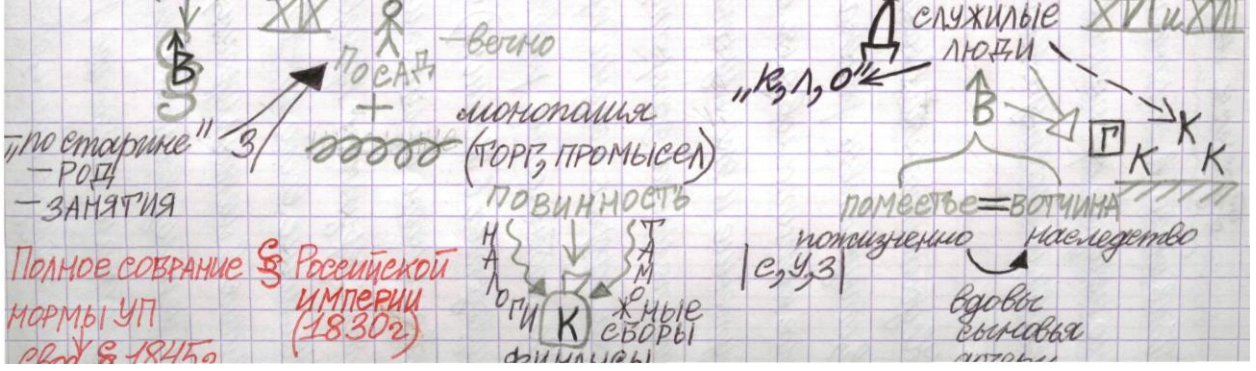 XIX
В
ПОСАД
-вечно
+
„по старине"
З
-РОД
-ЗАНЯТИЯ
монополия
(ТОРГ, ПРОМЫСЕЛ)
ПОВИННОСТЬ
НАЛОГИ
К
ТАМО
ЖНЫЕ
СБОРЫ
ПОЛНОЕ СОБРАНИЕ § РОССИЙСКОЙ
ИМПЕРИИ
(1830г)
НОРМЫ УП
свод § 1845г
СЛУЖИЛЫЕ
ЛЮДИ
XVI и XVII
„К, Л, О"
В
Г
К
К
К
ПОМЕСТЬЕ=ВОТЧИНА
пожизненно
наследство
|С, У, З|
вдовы
сыновья
дочери